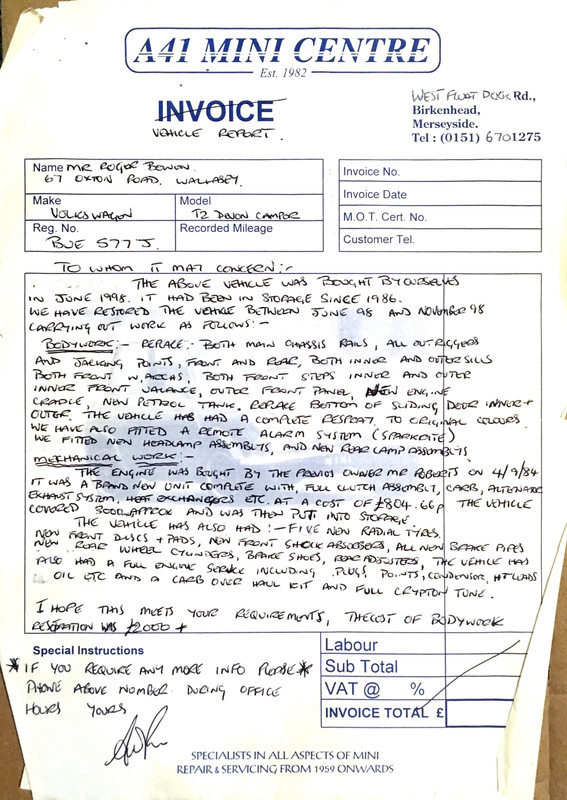 A41 MINI CENTRE
Est. 1982
INVOICE
VEHICLE REPORT.
WEST FLOAT DOCK Rd.,
Birkenhead,
Merseyside.
Tel : (0151) 6701275
Name MR ROGER BOWEN.
67 OXTON ROAD. WALLASEY.
Make
VOLKSWAGON
Model
T2 DEVON CAMPER
Reg. No.
BUE 577J.
Recorded Mileage
Invoice No.
Invoice Date
M.O.T. Cert. No.
Customer Tel.
TO WHOM IT MAY CONCERN:-
THE ABOVE VEHICLE WAS BOUGHT BY OURSELVES
IN JUNE 1998. IT HAD BEEN IN STORAGE SINCE 1986.
WE HAVE RESTORED THE VEHICLE BETWEEN JUNE 98 AND NOVEMBER 98
CARRYING OUT WORK AS FOLLOWS:-
BODYWORK:- REPLACE:- BOTH MAIN CHASSIS RAILS, ALL OUTRIGGERS
AND JACKING POINTS, FRONT AND REAR, BOTH INNER AND OUTER SILLS
BOTH FRONT W. ARCHS, BOTH FRONT STEPS INNER AND OUTER
INNER FRONT VALANCE, OUTER FRONT PANEL, NEW ENGINE
CRADLE, NEW PETROL TANK. REPLACE BOTTOM OF SLIDING DOOR INNER +
OUTER. THE VEHICLE HAS HAD A COMPLETE RESPRAY. TO ORIGINAL COLOURS.
WE HAVE ALSO FITTED A REMOTE ALARM SYSTEM (SPARKRITE)
WE FITTED NEW HEADLAMP ASSEMBLYS, AND NEW REAR LAMP ASSEMBLYS.
MECHANICAL WORK:-
THE ENGINE WAS BOUGHT BY THE PREVIOUS OWNER MR ROBERTS ON 4/9/84
IT WAS A BRAND NEW UNIT COMPLETE WITH, FULL CLUTCH ASSEMBLY, CARB, ALTENATOR
EXHAUST SYSTEM, HEAT EXCHANGERS ETC. AT A COST OF £804.66p THE VEHICLE
COVERED 3000 APPROX AND WAS THEN PUT INTO STORAGE.
THE VEHICLE HAS ALSO HAD:- FIVE NEW RADIAL TYRES.
NEW FRONT DISCS + PADS, NEW FRONT SHOCK ABSORBERS, ALL NEW BRAKE PIPES
NEW REAR WHEEL CYLINDERS, BRAKE SHOES, REAR ADJUSTERS, THE VEHICLE HAS
ALSO HAD A FULL ENGINE SERVICE INCLUDING. PLUGS POINTS, CONDENSOR, HT LEADS
OIL ETC AND A CARB OVER HAUL KIT AND FULL CRYPTON TUNE.
I HOPE THIS MEETS YOUR REQUIREMENTS, THE COST OF BODYWORK
RESTORATION WAS £2000 +
Special Instructions
* IF YOU REQUIRE ANY MORE INFO PLEASE *
PHONE ABOVE NUMBER DURING OFFICE
HOURS YOURS
Labour
Sub Total
VAT @ %
INVOICE TOTAL £
SPECIALISTS IN ALL ASPECTS OF MINI
REPAIR & SERVICING FROM 1959 ONWARDS